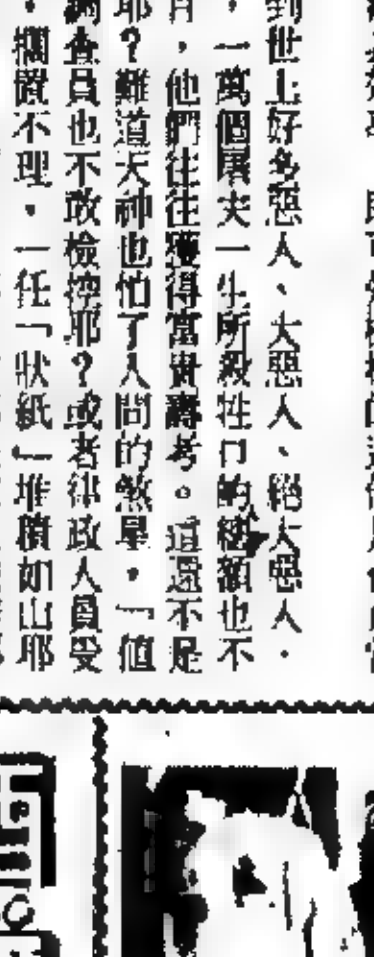 到世上好多惡人、大惡人、絕大惡人.
，一萬個屠夫一生所殺牲口的總額也不
，他們往往獲得富貴壽考。這還不是
耶？難道天神也怕了人間的煞星，「值
查員也不敢檢控耶？或者律政人員受
，擱置不理，一任「狀紙」堆積如山耶